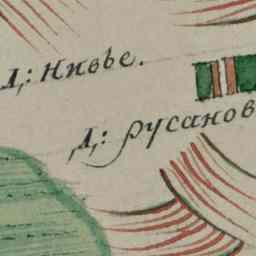 Д: Нивье.
Д: Русанов